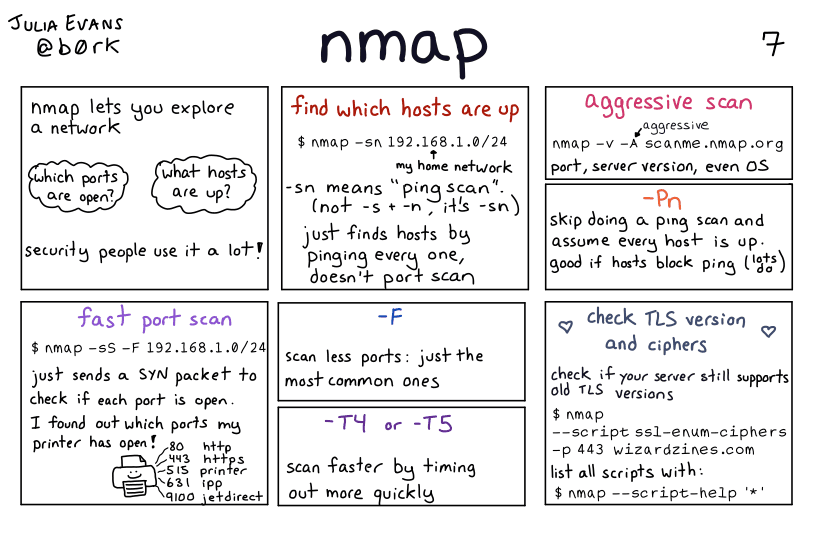 JULIA EVANS
@b0rk
nmap
7
nmap lets you explore
a network
which ports
are open?
what hosts
are up?
security people use it a lot!
find which hosts are up
$ nmap -sn 192.168.1.0/24
my home network
-sn means "ping scan".
(not -s + -n, it's -sn)
just finds hosts by
pinging every one,
doesn't port scan
aggressive scan
aggressive
nmap -v -A scanme.nmap.org
port, server version, even OS
-Pn
skip doing a ping scan and
assume every host is up.
good if hosts block ping (lots
do)
fast port scan
$ nmap -sS -F 192.168.1.0/24
just sends a SYN packet to
check if each port is open.
I found out which ports my
printer has open!
80 http
443 https
515 printer
631 ipp
9100 jetdirect
-F
scan less ports: just the
most common ones
-T4 or -T5
scan faster by timing
out more quickly
check TLS version
and ciphers
check if your server still supports
old TLS versions
$ nmap
--script ssl-enum-ciphers
-p 443 wizardzines.com
list all scripts with:
$ nmap --script-help '*'